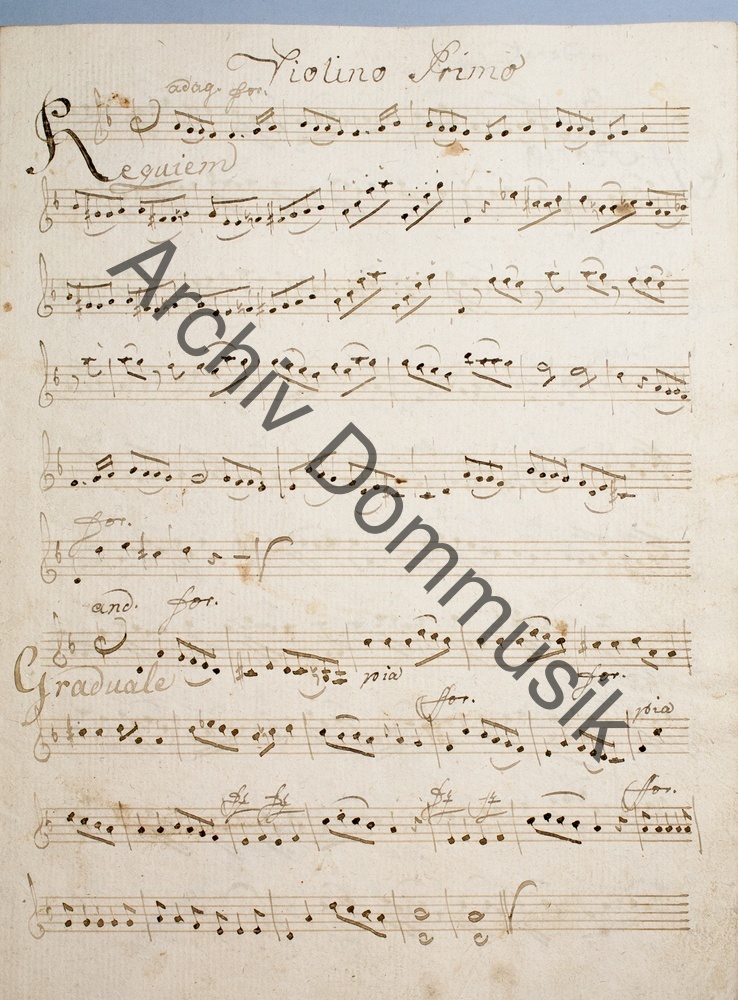 Violino Primo
adag. for.
Requiem
for.
and. for.
Graduale
pia
for.
for.
pia
for.
Archiv Dommusik